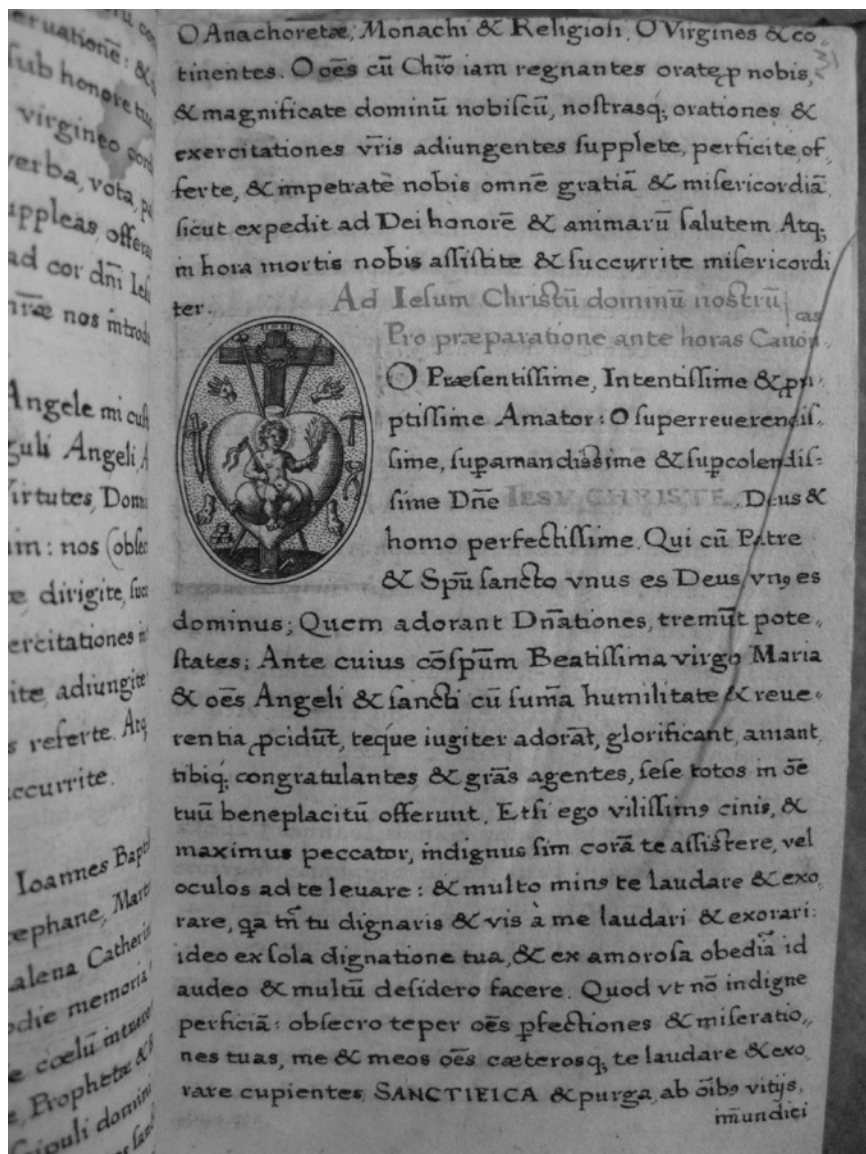 ruatione᷉: &
sub honore tuo
virgineo cord
verba, vota,
uppleas, offeras
ad cor dn̄i Iesu
nos introdu
Angele mi cust
guli Angeli, A
Virtutes, Domi
nos (obsec
dirigite, succ
ercitationes
ite, adiungite
s referte. Atq;
ccurrite.
Ioannes Bapt
ephane, Marti
alena Catherin
odie memoria
e cœlū intuere
Prophetæ &
scipuli domin
O Anachoretæ, Monachi & Religiosi, O Virgines & co„
tinentes. O oēs cū Chr̄o iam regnantes orate ꝓ nobis,
& magnificate dominū nobiscū, nostrasq; orationes &
exercitationes vr̄is adiungentes supplete, perficite of
ferte, & impetrate nobis omnē gratiā & misericordiā
sicut expedit ad Dei honorē & animarū salutem Atq;
in hora mortis nobis assistite & succurrite misericordi
ter. Ad Iesum Christū dominū nostrū
Pro præparatione ante horas Canon
cas
O Præsentissime, Intentissime &
ptissime Amator: O superreuerendis„
sime, suꝑamandissime & suꝑcolendis„
sime Dn̄e IESV CHRISTE. Deus &
homo perfectissime. Qui cū Patre
& Spū sancto vnus es Deus, vnꝰ es
dominus; Quem adorant Dn̄ationes, tremūt pote„
states; Ante cuius cōspūm Beatissima virgo Maria
& oēs Angeli & sancti cū sum̄a humilitate & reue„
rentia ꝓcidūt, teque iugiter adorāt, glorificant, amant,
tibiq; congratulantes & grās agentes, sese totos in oē
tuū beneplacitū offerunt. Etsi ego vilissimꝰ cinis, &
maximus peccator, indignus sim corā te assistere, vel
oculos ad te leuare: & multo minꝰ te laudare & exo
rare, qa tn̄ tu dignaris & vis à me laudari & exorari:
ideo ex sola dignatione tua, & ex amorosa obediā id
audeo & multū desidero facere. Quod vt nō indigne
perficiā: obsecro te per oēs ꝑfectiones & miseratio„
nes tuas, me & meos oēs cæterosq; te laudare & exo
rare cupientes, SANCTIFICA & purga, ab oībꝰ vitijs,
im̄undici